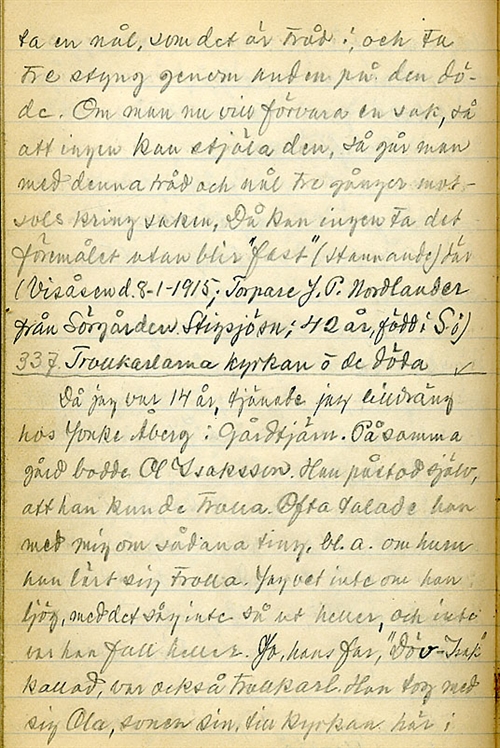 ta en nål, som det är tråd i, och ta
tre styng genom anden på den dö-
de. Om man nu vill förvara en sak, så
att ingen kan stjäla den, så går man
med denna tråd och nål tre gånger mot-
sols kring saken. Då kan ingen ta det
föremålet utan blir "fast" (stannande) där
(Visåsen d. 8-1-1915; Torpare J. P. Nordlander
från Sörgården. Stigsjösn; 42 år, född i S-ö)
337 Trollkarlarna kyrkan o de döda
Då jag var 14 år, tjänade jag lilldräng
hos Jonke Åberg i Gårdtjärn. På samma
gård bodde Ol Isaksson. Han påstod själv,
att han kunde trolla. Ofta talade han
med mig om sådana ting, bl. a. om huru
han lärt sig trolla. Jag vet inte om han
ljög, med det såg inte så ut heller, och inte
var han full heller. Jo, hans far, "Döv-Isak"
kallad, var också trollkarl. Han tog med
sig Ola, sonen sin, till kyrkan här i